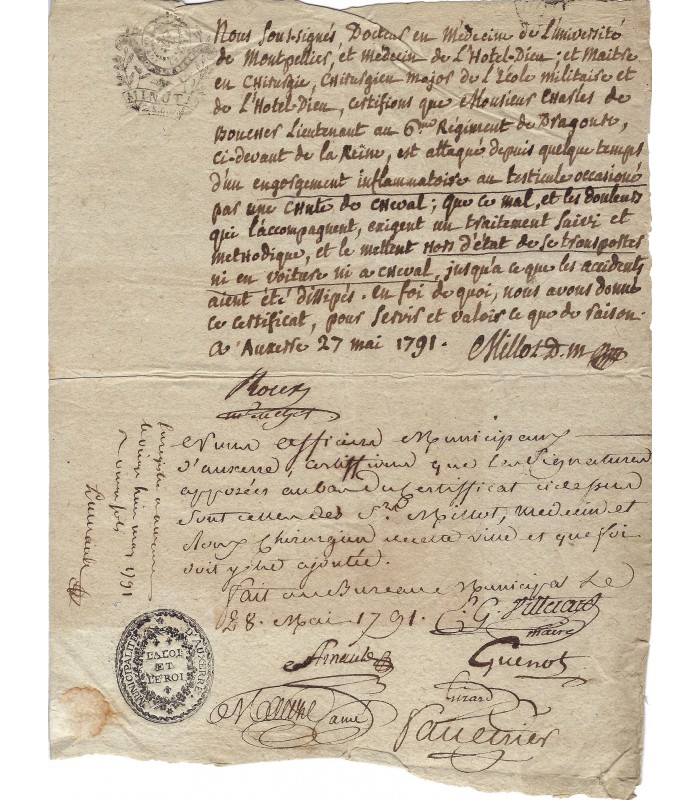 MINUTE
Nous soussignés Docteur en Médecine de L'université
de Montpellier, et médecin de L'Hotel-Dieu; et Maitre
en chirurgie, chirurgien major de l'Ecole militaire et
de L'Hotel-Dieu, certifions que Monsieur charles de
Boucher Lieutenant au 6me Régiment de Dragons,
ci-devant de la Reine, est attaqué depuis quelque temps
d'un engorgement inflammatoire au testicule occasioné
par une chute de cheval; que ce mal, et les douleurs
qui l'accompagnent, exigent un traitement suivi et
methodique, et le mettent hors d'état de se transporter
ni en voiture ni a cheval, jusqu'a ce que les accidents
aient été dissipés. en foi de quoi, nous avons donné
ce certificat, pour servir et valoir ce que de raison.
a auxerre 27 mai 1791. Millot D. m
Roux
Nous officiers Municipaux
d'auxerre, certiffions que les Signatures
apposées au bas du Certificat ci dessus
sont celles des Srs Millot, médecin et
Roux Chirurgien en cette ville et que foi
doit y être ajoutée.
Fait au Bureau Municipal Le
28. Mai 1791.
Villetard
maire
Guenot
Girard
ainé
Enregistré a auxerre
le vingt huit mai 1791
MUNICIPALITÉ D'AUXERRE
LA LOI
ET
LE ROI